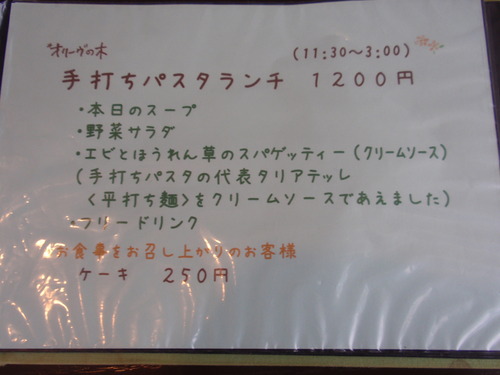 オリーヴの木
(11:30～3:00)
手打ちパスタランチ 1200円
・本日のスープ
・野菜サラダ
・エビとほうれん草のスパゲッティー(クリームソース)
(手打ちパスタの代表タリアテッレ
〈平打ち麺〉をクリームソースであえました)
・フリードリンク
お食事をお召し上がりのお客様
ケーキ 250円